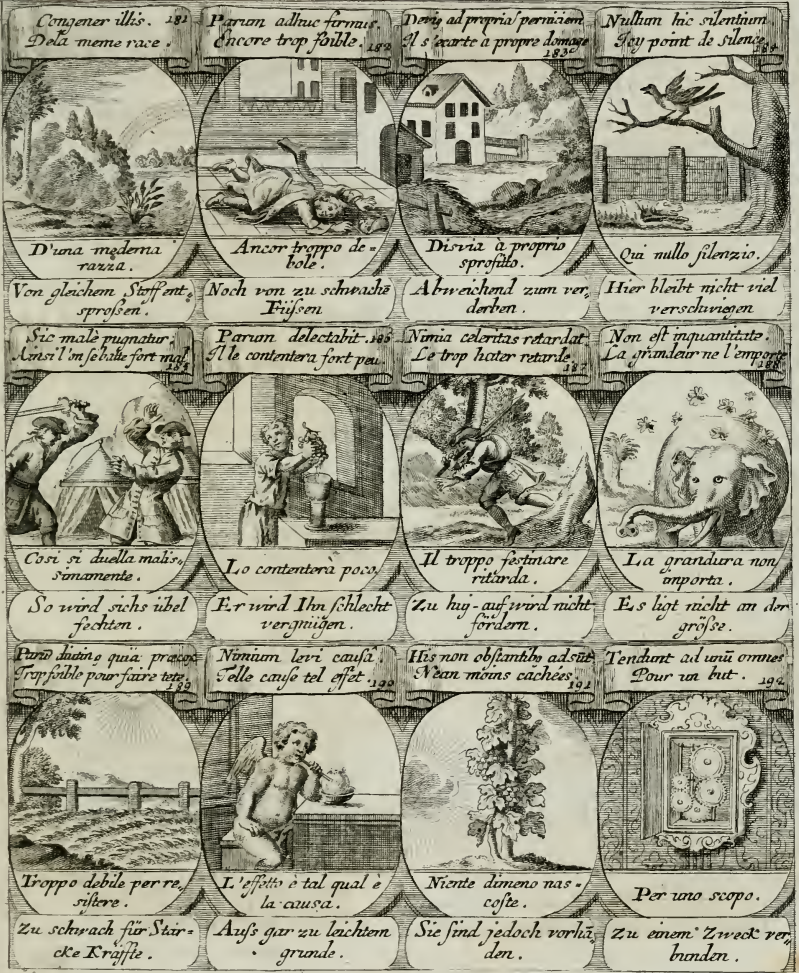 Congener illis. 181
De la meme race.
D'una medema
razza.
Von gleichem Stoff ent-
sprossen.
Parum adhuc firmus.
Encore trop foible. 182
Ancor troppo de-
bole.
Noch von zu schwachē
Füssen
Devia ad propriā perniciem
Il s'ecarte a propre domage
183
Disvia à proprio
sprofitto.
Abweichend zum ver-
derben.
Nullum hic silentium
Icy point de silence.
184
Qui nullo silenzio.
Hier bleibt nicht viel
verschwiegen
Sic malè pugnatur.
Ainsi l'on se batte fort mal.
185
Cosi si duella malis-
simamente.
So wird sichs übel
fechten.
Parum delectabit. 186
Il le contentera fort peu.
Lo contenterà poco.
Er wird Ihn schlecht
vergnügen.
Nimia celeritas retardat
Le trop hater retarde.
187
Il troppo festinare
ritarda.
Zu huj-auf wird nicht
fördern.
Non est in quantitate.
La grandeur ne l'emporte
188
La grandura non
importa.
Es ligt nicht an der
grösse.
quia præcox
Trop foible pour faire tete.
189
Troppo debile per re-
sistere.
Zu schwach für Stär-
cke Kräffte.
Nimium levi causâ.
Telle cause tel effet. 190
L'effetto è tal qual è
la causa.
Auss gar zu leichtem
grunde.
His non obstantibꝰ adsūt
Nean moins cachées.
191
Niente dimeno nas-
coste.
Sie sind jedoch vorhā-
den.
Tendunt ad unū omnes
Pour un but. 192
Per uno scopo.
Zu einem Zweck ver-
bunden.